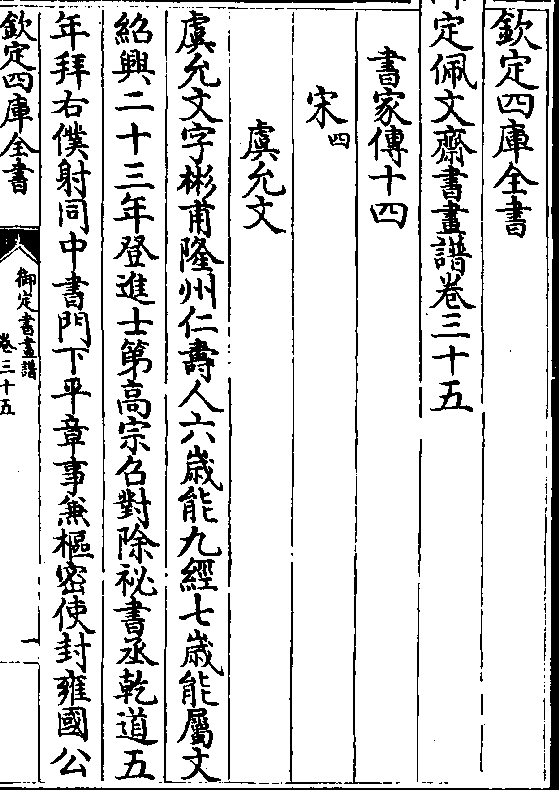 欽定四庫全書
御定佩文齋書畫譜卷三十五
書家傳十四
宋四
虞允文
虞允文字彬甫隆州仁壽人六歲能九經七歲能屬文
紹興二十三年登進士第高宗召對除祕書丞乾道五
年拜右僕射同中書門下平章事兼樞密使封雍國公
欽定四庫全書
御定書畫譜
卷三十五
一